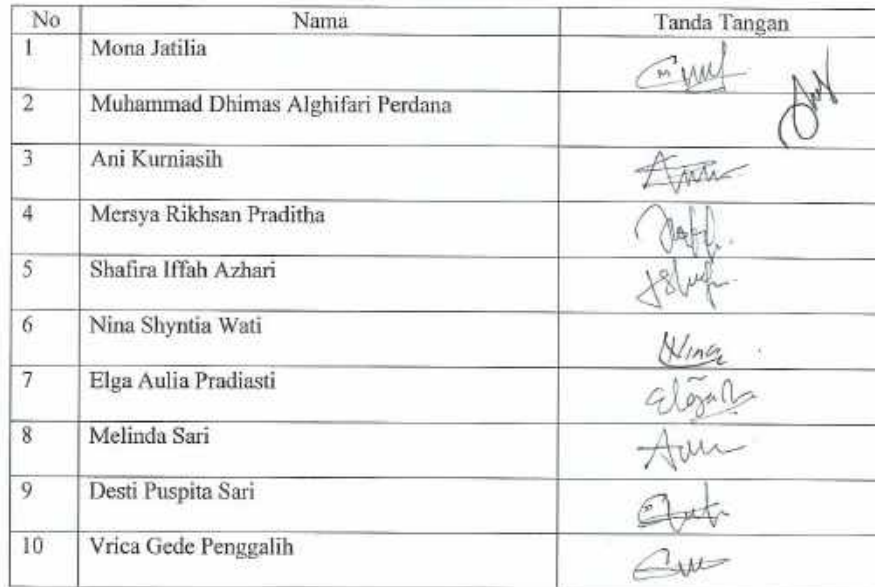 No Nama Tanda Tangan
1 Mona Jatilia
2 Muhammad Dhimas Alghifari Perdana
3 Ani Kurniasih
4 Mersya Rikhsan Praditha
5 Shafira Iffah Azhari
6 Nina Shyntia Wati Nina
7 Elga Aulia Pradiasti
8 Melinda Sari
9 Desti Puspita Sari
10 Vrica Gede Penggalih